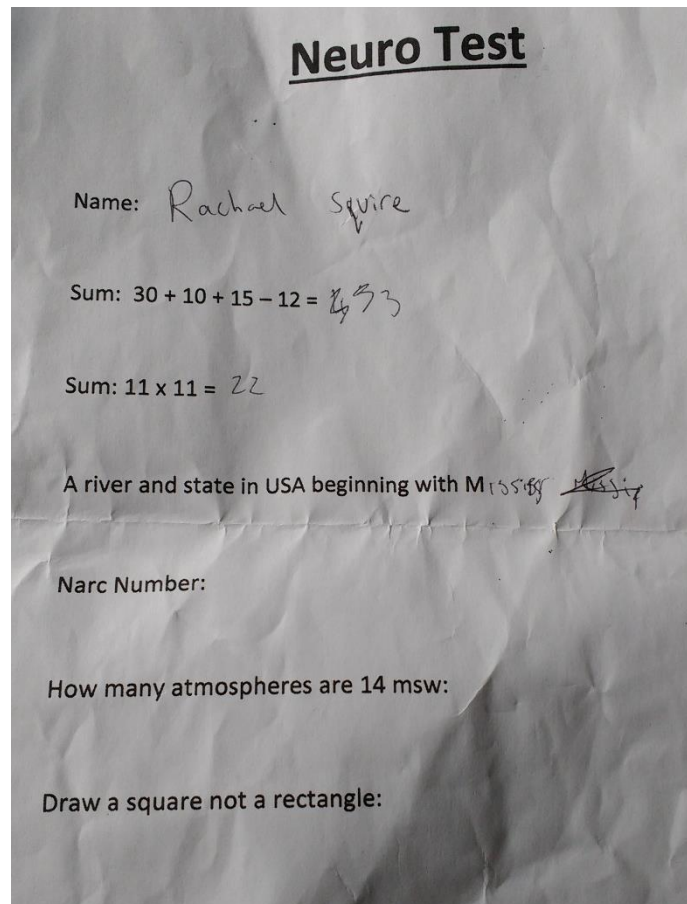 Neuro Test
Name: Rachael Squire
Sum: 30 + 10 + 15 – 12 = 33
Sum: 11 x 11 = 22
A river and state in USA beginning with M
Narc Number:
How many atmospheres are 14 msw:
Draw a square not a rectangle: